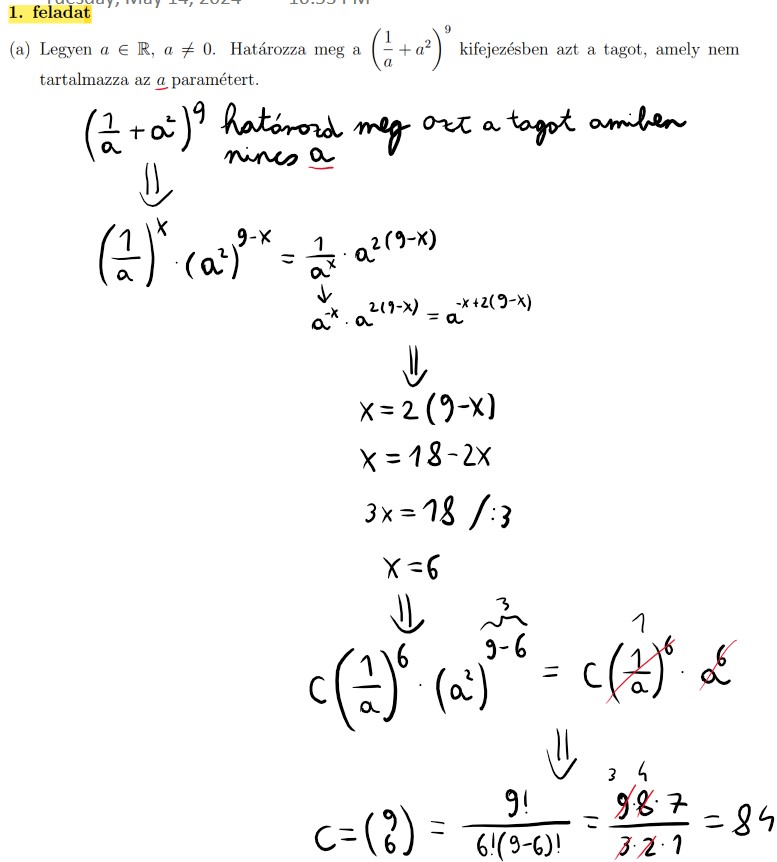 Tuesday, May 14, 2024 10:55 PM
1. feladat
(a) Legyen a ∈ ℝ, a ≠ 0. Határozza meg a (1/a + a²)⁹ kifejezésben azt a tagot, amely nem
tartalmazza az a paramétert.
(1/a + a²)⁹ határozd meg azt a tagot amiben
nincs a
⇓
(1/a)ˣ · (a²)⁹⁻ˣ = 1/aˣ · a²⁽⁹⁻ˣ⁾
↓
a⁻ˣ · a²⁽⁹⁻ˣ⁾ = a⁻ˣ⁺²⁽⁹⁻ˣ⁾
⇓
x = 2(9-x)
x = 18-2x
3x = 18 /:3
x = 6
⇓
3 1
C(1/a)⁶ · (a²)⁹⁻⁶ = C(1/a)⁶ · a⁶
⇓
3 4
C = (9 6) = 9!/6!(9-6)! = 9·8·7/3·2·1 = 84